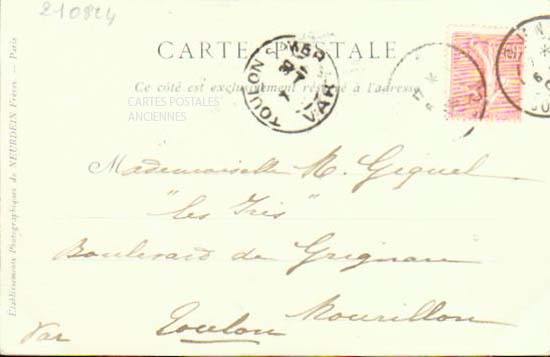 210824
CARTE POSTALE
Ce côté est exclusivement réservé à l'adresse
CARTES POSTALES
ANCIENNES
TOULON S/MER
VAR
Etablissements Photographiques de NEURDEIN Frères. — Paris
Mademoiselle M. Giquel
"les Iris"
Boulevard de Grignan
Mourillon
Toulon
Var